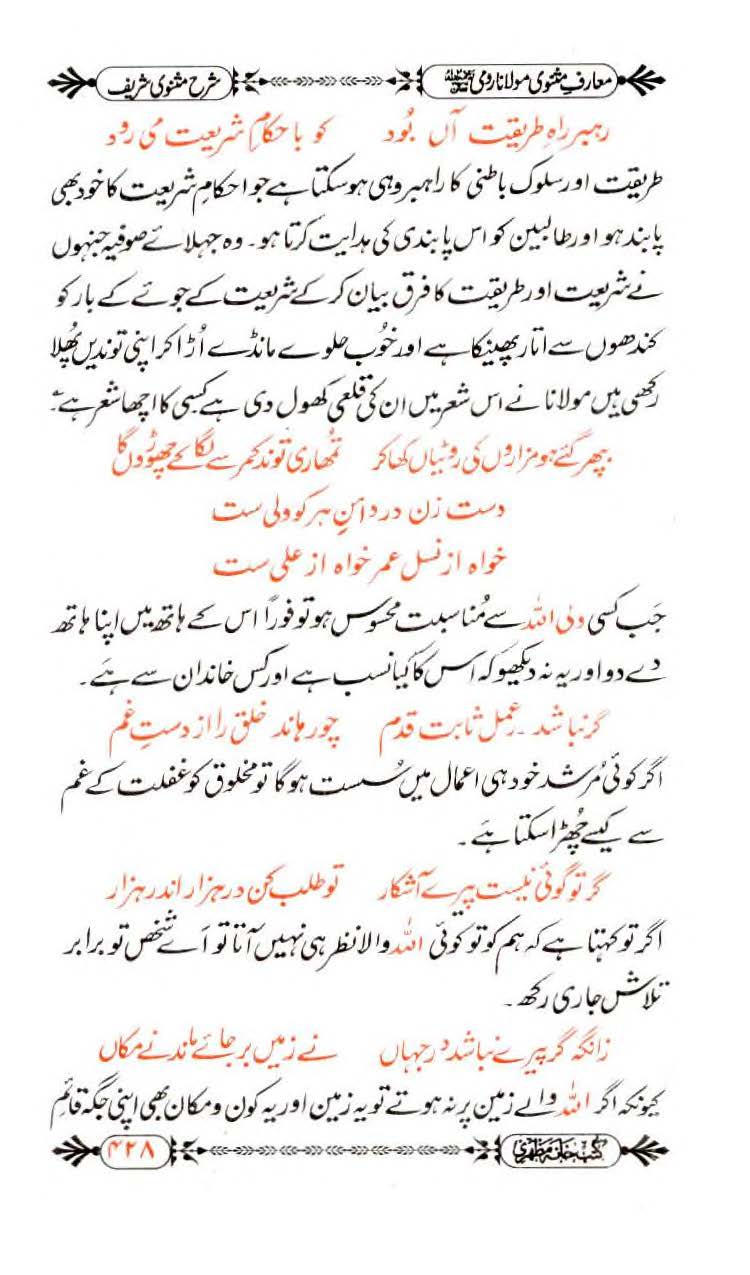 معارفِ مثنوی مولانا رومی ؒ
شرح مثنوی شریف
رہبر راہِ طریقت آں بُود کو با حکامِ شریعت می رود
طریقت اور سلوک باطنی کا راہبر وہی ہوسکتا ہے جو احکامِ شریعت کا خود بھی
پابند ہو اور طالبین کو اس پابندی کی ہدایت کرتا ہو۔ وہ جہلائے صوفیہ جنہوں
نے شریعت اور طریقت کا فرق بیان کر کے شریعت کے جوئے کے بار کو
کندھوں سے اتار پھینکا ہے اور خُوب حلوے مانڈے اُڑا کر اپنی توندیں پُھلا
رکھی ہیں مولانا نے اس شعر میں ان کی قلعی کھول دی ہے کسی کا اچھا شعر ہے ؎
بپھر گئے ہو مزاروں کی روٹیاں کھا کر تمُھاری توند کمر سے لگا کے چھوڑوں گا
دست زن در دامنِ ہر کو ولی ست
خواہ از نسل عمر خواہ از علی ست
جَب کسی ولی اللہ سے مُناسبت محسوس ہو تو فوراً اس کے ہاتھ میں اپنا ہاتھ
دے دو اور یہ نہ دیکھو کہ اس کا کیا نسب ہے اور کس خاندان سے ہَے۔
گر نباشد در عمل ثابت قدم چوں رہاند خلق را از دستِ غم
اگر کوئی مُرشد خود ہی اعمال میں سُست ہوگا تو مخلوق کو غفلت کے غم
سے کیسے چُھڑا سکتا ہَے ۔
گر تو گوئی نیست پیرے آشکار تو طلب کن در ہزار اندر ہزار
اگر تو کہتا ہے کہ ہم کو تو کوئی اللہ والا نظر ہی نہیں آتا تو اَے شخص تو برابر
تلاش جاری رکھ۔
زانکہ گر پیرے نباشد در جہاں نے زمیں بر جائے ماند نے مکاں
کیونکہ اگر اللہ والے زمین پر نہ ہوتے تو یہ زمین اور یہ کون و مکان بھی اپنی جگہ قائم
کتب خانہ مظہری
۴۲۸